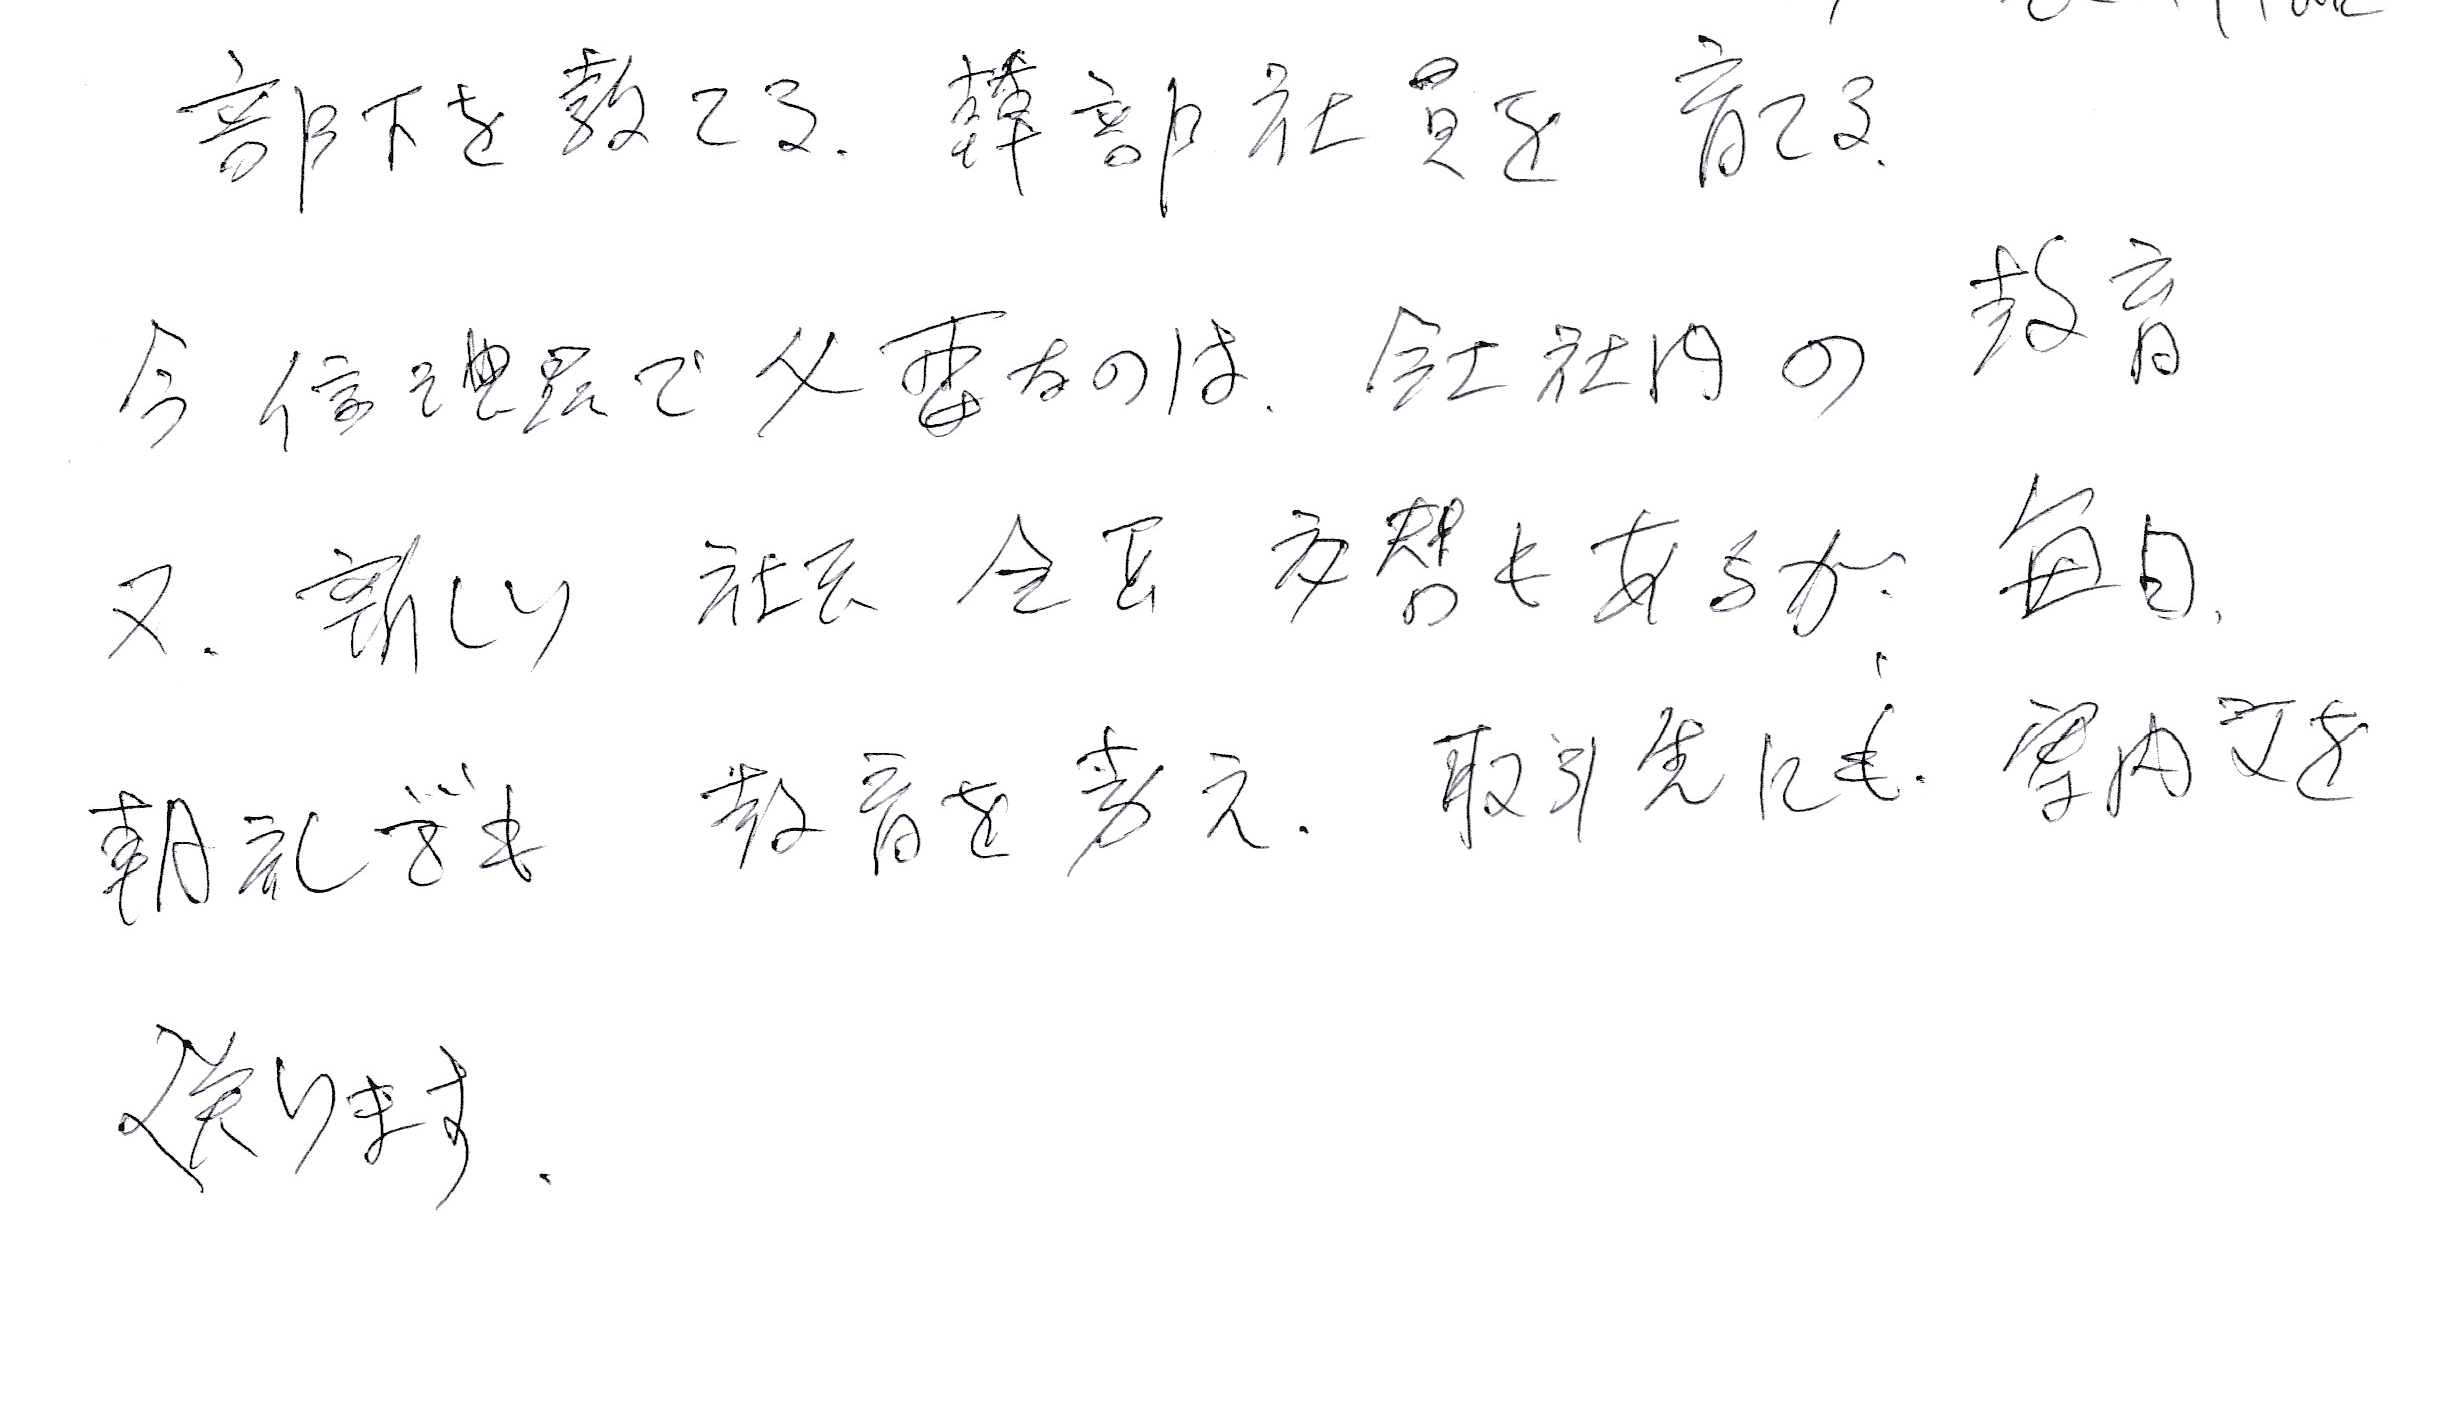 部下を教てる。幹部社員を育てる。
今 で必要なのは、会社社内の教育
又、新しい社長 会長 交替もあるが、毎日、
朝礼 も 教育を考え、取引先にも、案内文を
送ります。